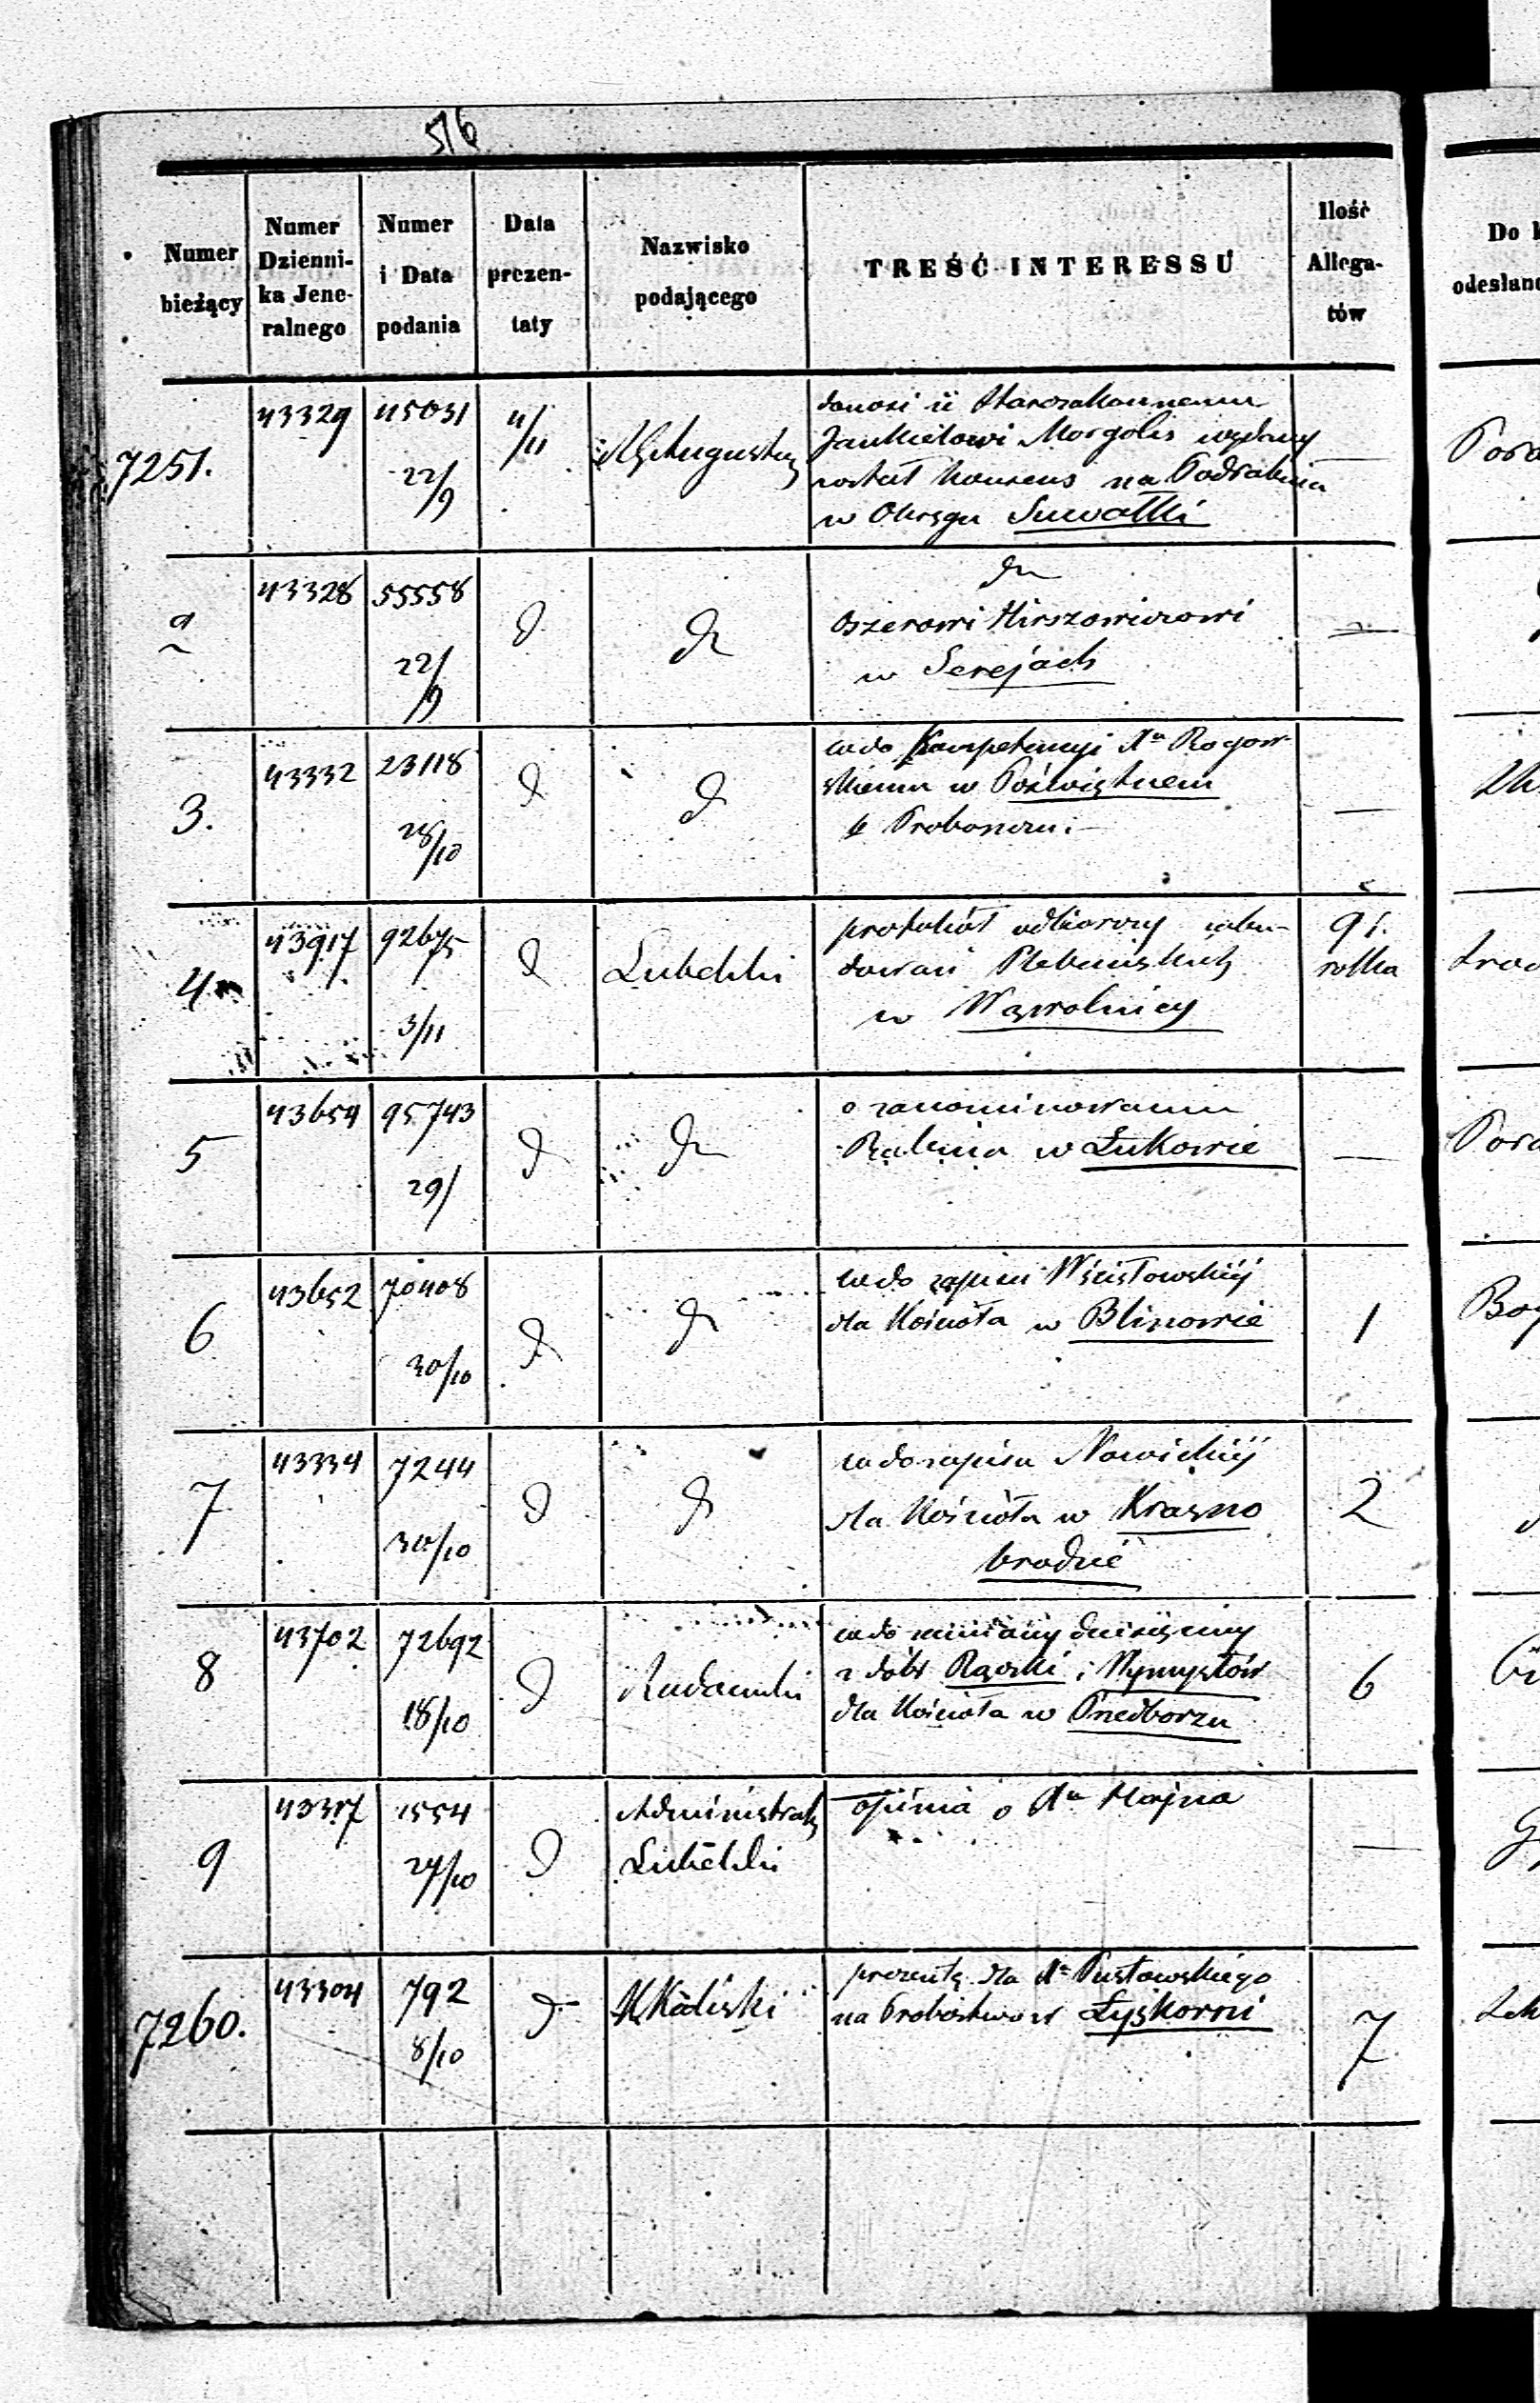 516
Numer bieżący
Numer Dzienni-ka Jene-ralnego
Numer i Data podania
Data prezen-taty
Nazwisko podającego
TREŚĆ INTERESSU
Ilość Allega-tów
Do
odesłano
7251.
43329
45031
22/9
4/11
RG Augustow
donosi iż Starozakonnemu
Jankielowi Morgolis wydany
został konsens na Podrabina
w Okręgu Suwałki
—
2
43328
55558
22/9
d
do
do
Oszerowi Hirszowiczowi
w Serejach
—
3.
43332
23118
28/10
d
d
co do kompetencyi Xa Rogow-
skiemu w Poświętnem
—
4
43917
92675
3/11
d
Lubelski
protokół odbiorczy zabu-
dowań Plebańskich
w Wąwolnicy
91.
rolka
5
43654
95743
29/
d
do
o zanominowaniu
Rabina w Łukowie
—
6
43652
70408
30/10
d
d
co do zapisu Wścisłowskiej
dla Kościoła w Blinowie
1
7
43334
7244
30/10
d
d
co do zapisu Nowickiej
dla Kościoła w Krasno
brodzie
2
8
43702
72692
18/10
d
Radomski
co do zamiany dziesięciny
z dóbr Rączki i Wymysłów
dla Kościoła w Przedborzu
6
9
43317
1554
24/10
d
Administrator
Lubelski
opinia o Xu Majna
—
7260.
43304
792
8/10
d
K Kaliski
prezentę dla Xa Pustowskiego
na Probostwo w Łyskorni
7